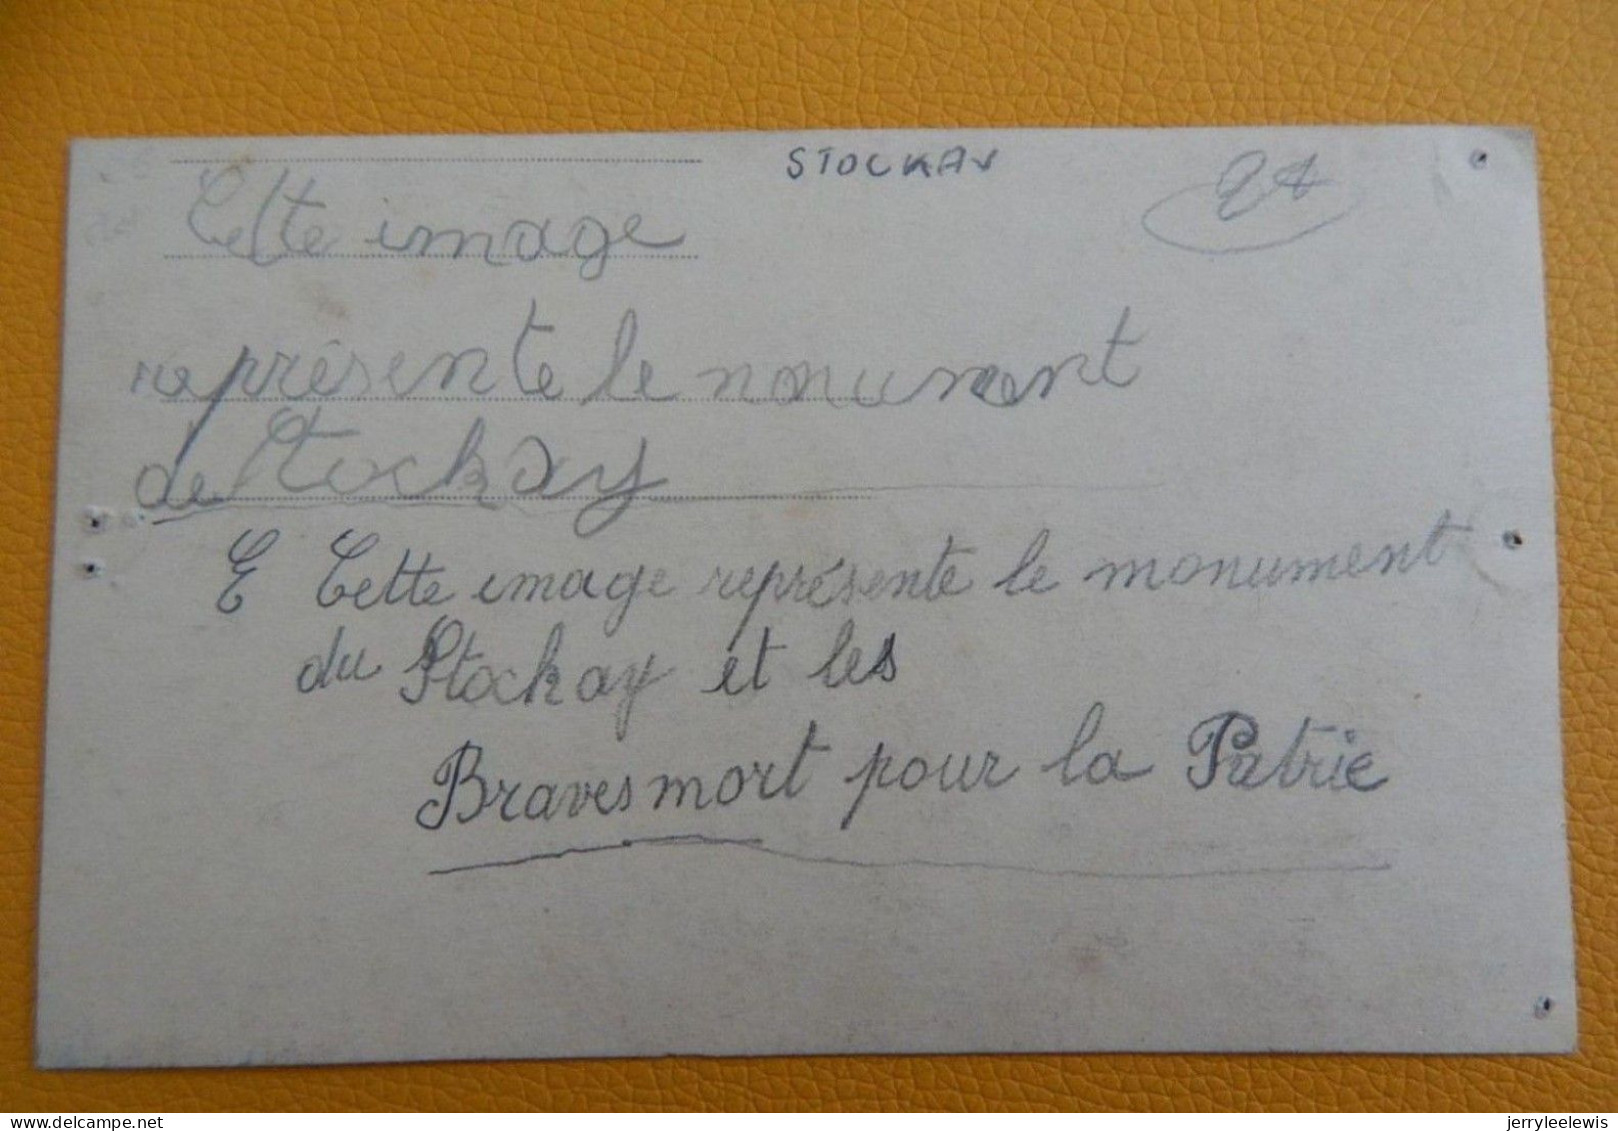 STOCKAY
Cette image
représente le nonument
de Stockay
E Cette image représente le monument
du Stockay et les
Braves mort pour la Patrie
jerryleelewis